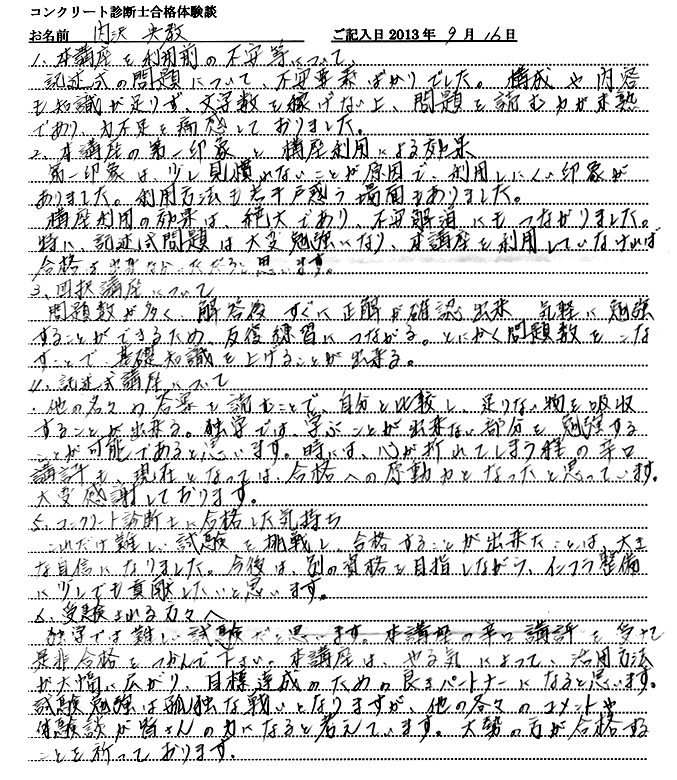 コンクリート診断士合格体験談
お名前 内沢 央教 ご記入日2013年 9月 16日
1. 本講座を利用前の不安等について、
記述式の問題について、不安要素ばかりでした。構成や内容
も知識が足りず、文字数を稼げない上、問題を読む力が未熟
であり、力不足を痛感しておりました。
2. 本講座の第一印象と講座利用による効果
第一印象は、少し見慣れないことが原因で、利用しにくい印象が
ありました。利用方法も若干戸惑う場面もありました。
講座利用の効果は、絶大であり、不安解消にもつながりました。
特に、記述式問題は大変勉強になり、本講座を利用していなければ
合格は出来なかっただろうと思います。
3. 四択講座について
問題数が多く、解答後すぐに正解が確認出来、気軽に勉強
することができるため、反復練習につながる。とにかく問題数をこな
すことで、基礎知識を上げることが出来る。
4. 記述式講座について
他の名々の答案を読むことで、自分と比較し、足りない物を吸収
することが出来る。独学では、学ぶことが出来ない部分を勉強する
ことが可能であると思います。時には、心が折れてしまう程の辛口
講評も、現在となっては、合格への原動力となったと思っています。
大変感謝しております。
5. コンクリート診断士に合格した気持ち
これだけ難しい試験を挑戦し、合格することが出来たことは、大き
な自信になりました。今後は、別の資格を目指しながら、インフラ整備
に少しでも貢献したいと思います。
6. 受験される方々へ
独学では難しい試験だと思います。本講座の辛口講評を受けて
是非合格をつかんで下さい。本講座は、やる気によって、活用方法
が大幅に広がり、目標達成のための良きパートナーになると思います。
試験勉強は孤独な戦いとなりますが、他の各々のコメントや
体験談が皆さんの力になると考えています。大勢の方が合格する
ことを祈っております。